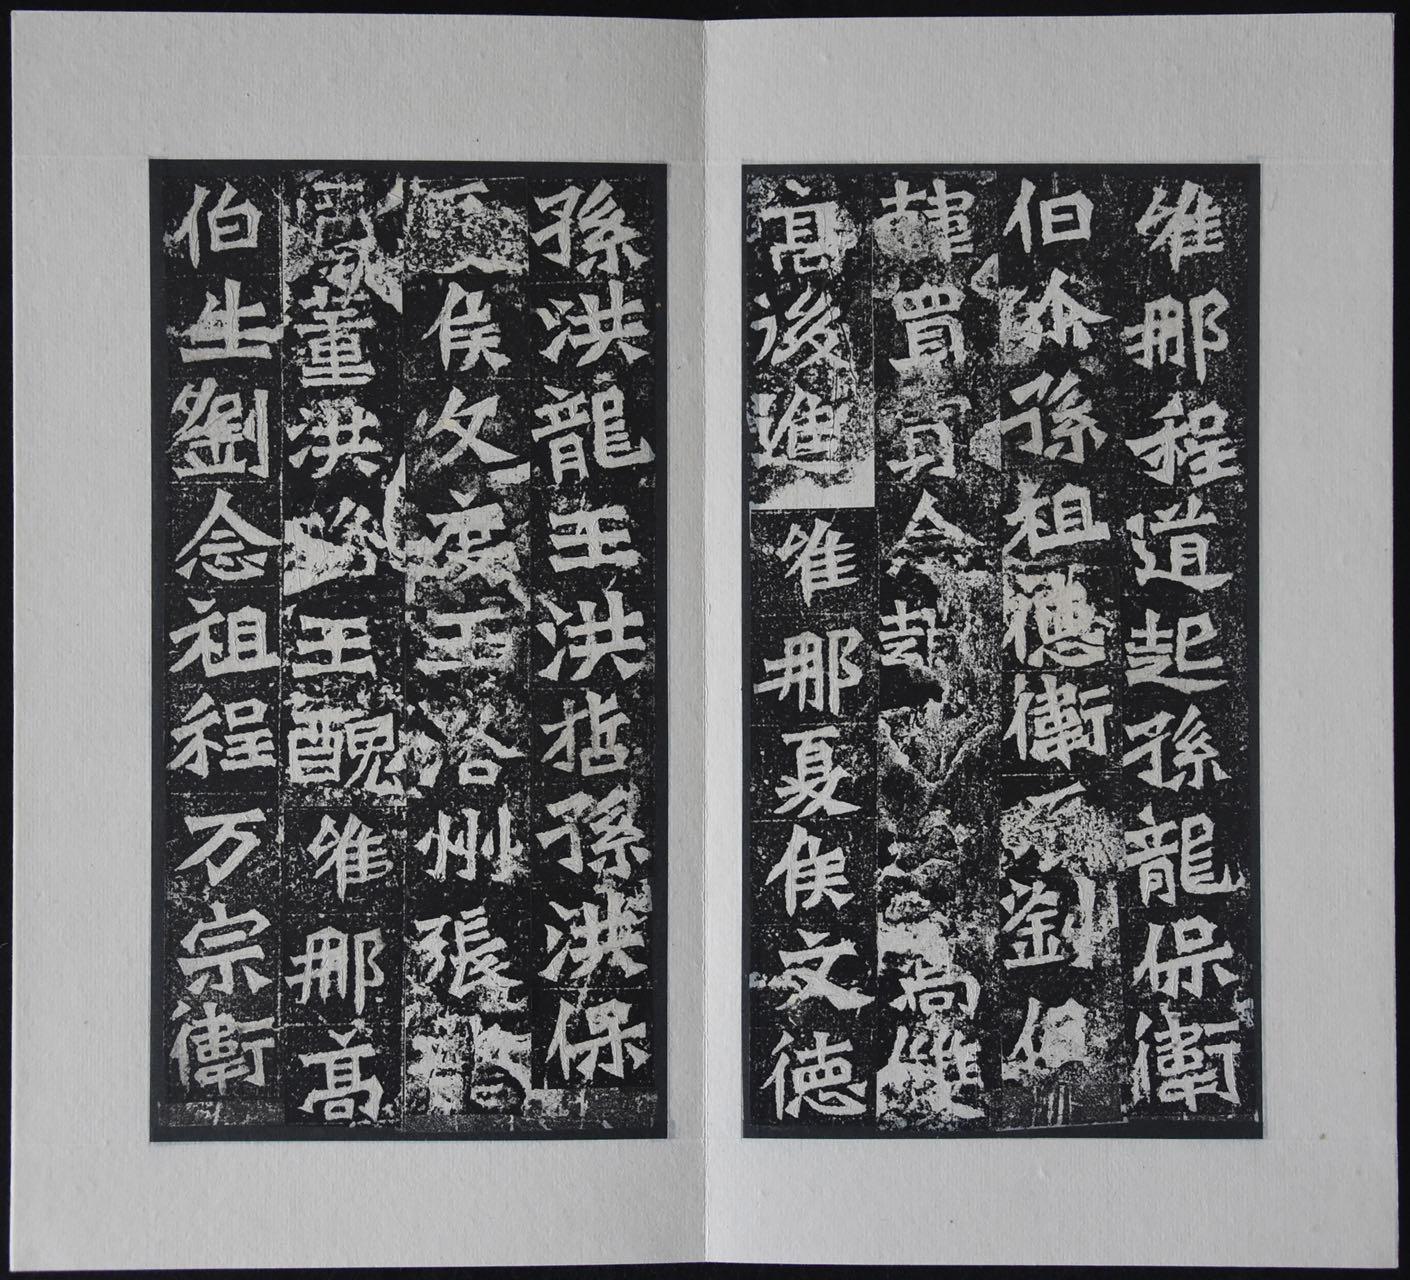 維那程道起孫龍保衛
伯 孫祖德衛 劉
韓買 令 高雙
高後進維那夏侯文德
孫洪龍王洪 孫洪保
侯文度王洛州張
董洪 王醜維那高
伯生劉念祖程万宗衛